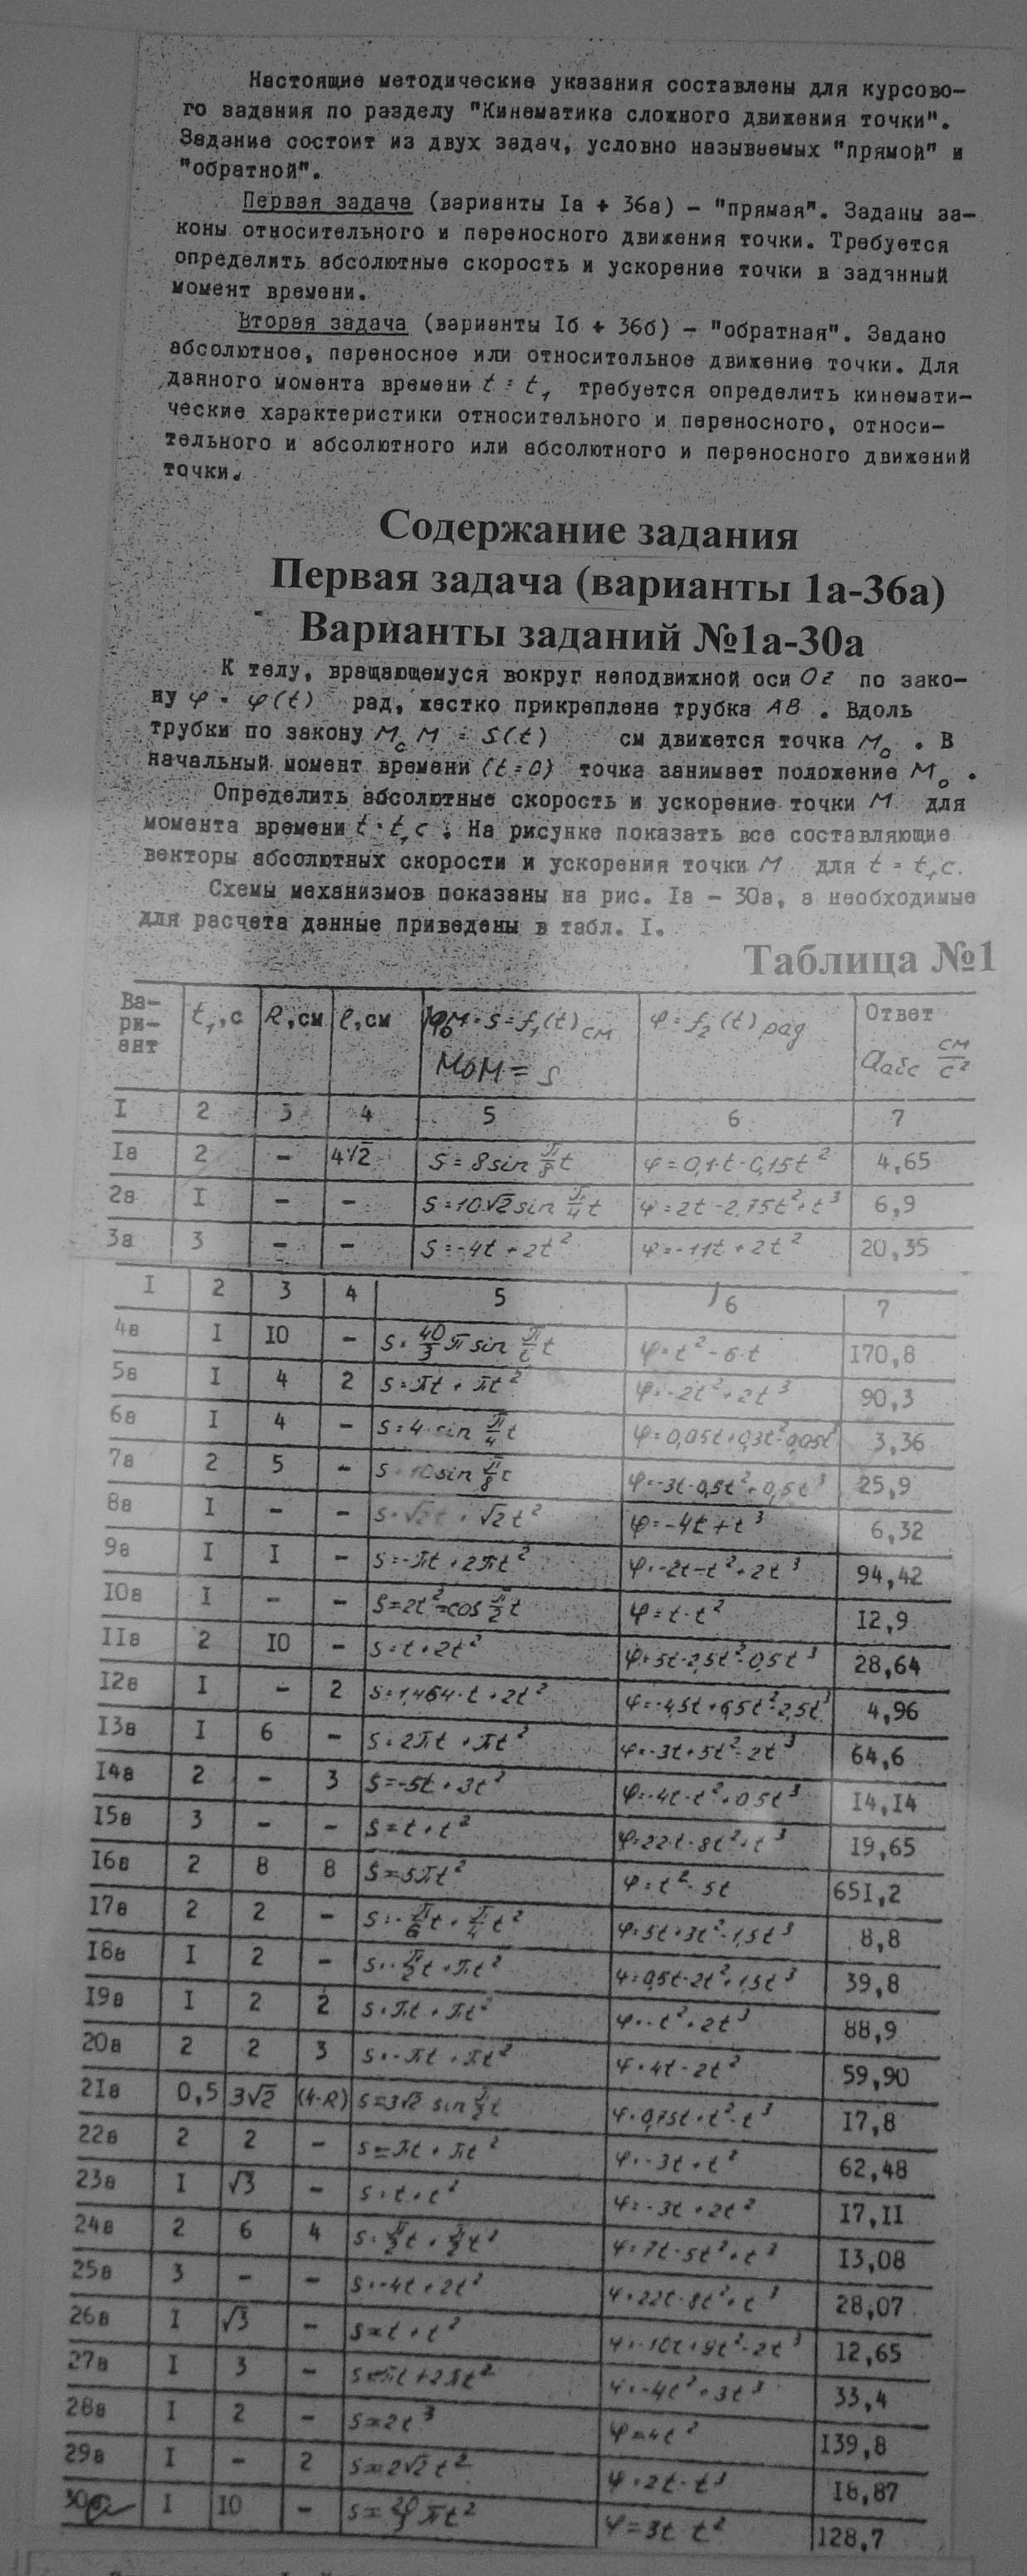 Настоящие методические указания составлены для курсово-
го задания по разделу "Кинематика сложного движения точки".
Задание состоит из двух задач, условно называемых "прямой" и
"обратной".
Первая задача (варианты Iа + 36а) – "прямая". Заданы за-
коны относительного и переносного движения точки. Требуется
определить абсолютные скорость и ускорение точки в заданный
момент времени.
Вторая задача (варианты Iб + 36б) – "обратная". Задано
абсолютное, переносное или относительное движение точки. Для
данного момента времени t = t₁ требуется определить кинемати-
ческие характеристики относительного и переносного, относи-
тельного и абсолютного или абсолютного и переносного движений
точки.
Содержание задания
Первая задача (варианты 1а-36а)
Варианты заданий №1а-30а
К телу, вращающемуся вокруг неподвижной оси Oz по зако-
ну φ = φ(t) рад, жестко прикреплена трубка AB . Вдоль
трубки по закону M₀M = S(t) см движется точка M₀ . В
начальный момент времени (t=0) точка занимает положение M₀ .
Определить абсолютные скорость и ускорение точки M для
момента времени t = t₁c . На рисунке показать все составляющие
векторы абсолютных скорости и ускорения точки M для t = t₁c.
Схемы механизмов показаны на рис. Iа – 30а, а необходимые
для расчета данные приведены в табл. I.
Таблица №1
Ва-ри-ант t₁,с R,см ℓ,см S=f₁(t) см φ=f₂(t) рад Ответ aабс см/с²
M₀M = S
I 2 3 4 5 6 7
Iа 2 – 4√2 S=8sin π/8 t φ=0,1t-0,15t² 4,65
2а I – – S=10√2 sin π/4 t φ=2t-2,75t²+t³ 6,9
3а 3 – – S=-4t+2t² φ=-11t+2t² 20,35
I 2 3 4 5 6 7
4а I I0 – S=40/3 π sin π/6 t φ=t²-6t I70,8
5а I 4 2 S=πt+πt² φ=-2t²+2t³ 90,3
6а I 4 – S=4 sin π/4 t 3,36
7а 2 5 – S=10sin π/8 t φ=-3t-0,5t²+0,5t³ 25,9
8а I – – S=√2t+√2t² φ=-4t+t³ 6,32
9а I I – S=-πt+2πt² φ=-2t-t²+2t³ 94,42
I0а I – – φ=t-t² I2,9
IIа 2 I0 – S=t+2t² 28,64
I2а I – 2 S=1,464t+2t² φ=-4,5t+6,5t²-2,5t³ 4,96
I3а I 6 – S=2πt+πt² φ=-3t+5t²-2t³ 64,6
I4а 2 – 3 S=-5t+3t² φ=-4t-t²+0,5t³ I4,I4
I5а 3 – – S=t+t² φ=22t-8t²+t³ I9,65
I6а 2 8 8 S=5πt² φ=t²-5t 65I,2
I7а 2 2 – S=-π/6 t+π/4 t² φ=5t+3t²-1,5t³ 8,8
I8а I 2 – S=-π/2 t+πt² φ=0,5t-2t²+1,5t³ 39,8
I9а I 2 2 S=πt+πt² φ=-t²+2t³ 88,9
20а 2 2 3 S=-πt+πt² φ=4t-2t² 59,90
2Iа 0,5 3√2 (4-R) S=3√2 sin π/2 t φ=0,75t+t²-t³ I7,8
22а 2 2 – S=-πt+πt² φ=-3t+t² 62,48
23а I √3 – S=t+t² φ=-3t+2t² I7,II
24а 2 6 4 S=π/2 t+π/2 t² φ=7t-5t²+t³ I3,08
25а 3 – – S=-4t+2t² φ=22t-8t²+t³ 28,07
26а I √3 – S=t+t² φ=-10t+9t²-2t³ I2,65
27а I 3 – S=-πt+2πt² φ=-4t²+3t³ 33,4
28а I 2 – S=2t³ φ=4t² I39,8
29а I – 2 S=2√2t² φ=2t-t³ I6,87
30а I I0 – φ=3t-t² I28,7